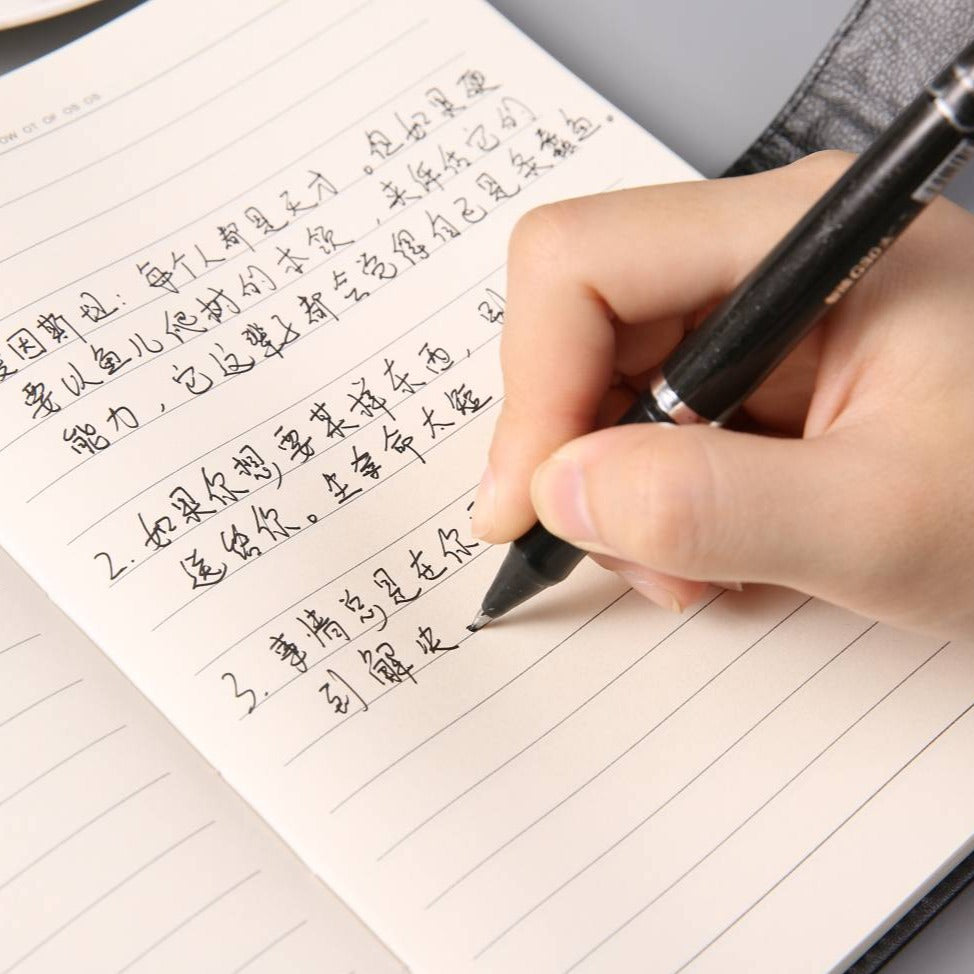 爱因斯坦：每个人都是天才。但如果硬
要以鱼儿爬树的本领，来评估它的
能力，它这辈子都会觉得自己是条蠢鱼。
2. 如果你想要某样东西，别
送给你。生命太短
3. 事情总是在你
到解决